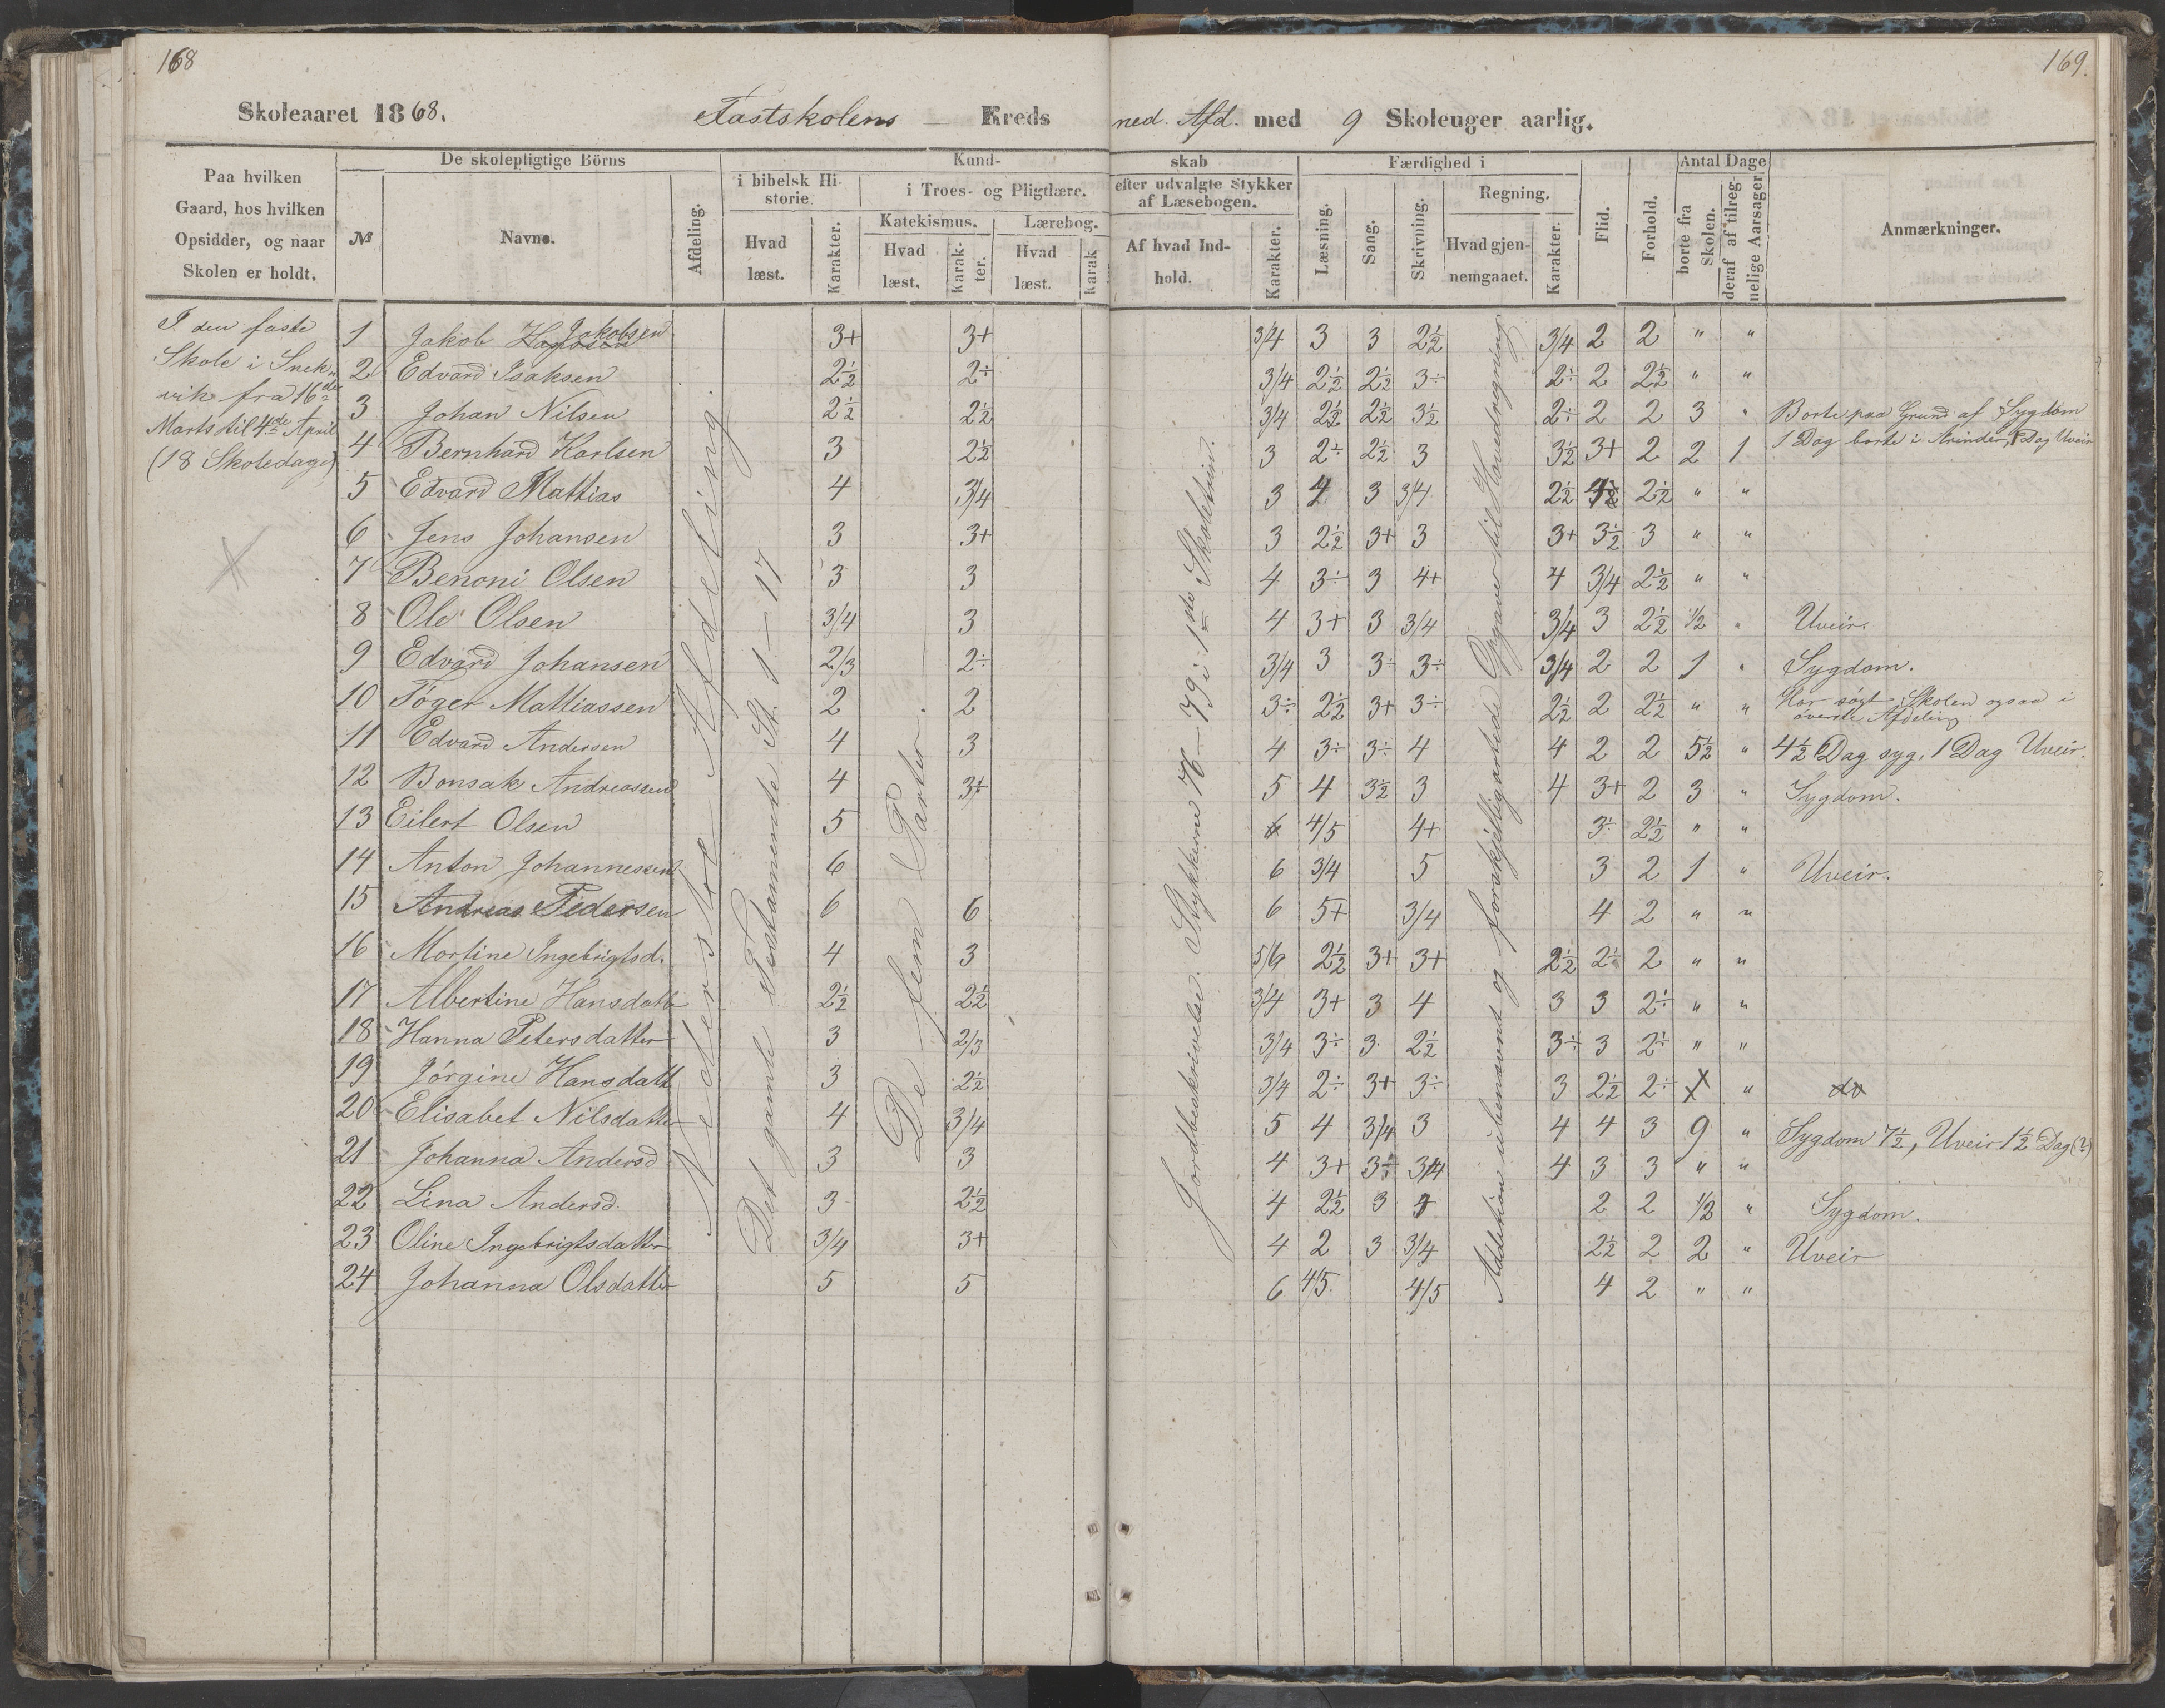 168
169.
Skoleaaret 1868. Fastskolens — Kreds ned. Afd. med 9 Skoleuger aarlig.
Paa hvilken
Gaard, hos hvilken
Opsidder, og naar
Skolen er holdt.
De skolepligtige Börns
№
Navne.
Afdeling.
Kund-
i bibelsk Hi-
storie
Hvad
læst.
Karakter.
i Troes- og Pligtlære.
Katekismus.
Hvad
læst.
Karak-
ter.
Lærebog.
Hvad
læst.
Karak
skab
efter udvalgte Stykker
af Læsebogen.
Af hvad Ind-
hold.
Karakter.
Færdighed i
Læsning.
Sang.
Skrivning.
Regning.
Hvad gjen-
nemgaaet.
Karakter.
Flid.
Forhold.
Antal Dage
borte fra
Skolen.
deraf af tilreg-
nelige Aarsager
Anmærkninger.
I den faste
Skole i Snek-
vik fra 16de
Marts til 4de April
(18 Skoledage)
Nederste Afdeling.
Det gamle Testamente St. 1 — 17
De fem Parter.
Jordbeskrivelse. Stykkerne 76 — 79 i 1ste Skoletrin.
Addition i ubenævnt og forskjelligartede Opgaver til Hovedregning
1 Jakob Jakobsen 3+ 3+ 3/4 3 3 2½ 3/4 2 2 " "
2 Edvard Isaksen 2½ 2÷ 3/4 2½ 2½ 3÷ 2÷ 2 2½ " "
3 Johan Nilsen 2½ 2½ 3/4 2½ 2½ 3½ 2÷ 2 2 3 " Borte paa Grund af Sygdom
4 Bernhard Karlsen 3 2½ 3 2÷ 2½ 3 3½ 3+ 2 2 1 1 Dag borte i Ærinder, 1 Dag Uveir
5 Edvard Mattias 4 3/4 3 4 3 3/4 2½ 2½ " "
6 Jens Johansen 3 3+ 3 2½ 3+ 3 3+ 3½ 3 " "
7 Benoni Olsen 3 3 4 3÷ 3 4+ 4 3/4 2½ " "
8 Ole Olsen 3/4 3 4 3+ 3 3/4 3/4 3 2½ ½ " Uveir.
9 Edvard Johansen 2/3 2÷ 3/4 3 3÷ 3÷ 3/4 2 2 1 " Sygdom.
10 Töger Mattiassen 2 2 3÷ 2½ 3+ 3÷ 2½ 2 2½ " " Har søgt Skolen ogsaa i
øverste Afdeling
11 Edvard Andersen 4 3 4 3÷ 3÷ 4 4 2 2 5½ " 4½ Dag syg, 1 Dag Uveir.
12 Bonsak Andreassen 4 3+ 5 4 3½ 3 4 3+ 2 3 " Sygdom.
13 Eilert Olsen 5 6 4/5 4+ 3÷ 2½ " "
14 Anton Johannessen 6 6 3/4 5 3 2 1 " Uveir.
15 Andreas Pedersen 6 6 6 5+ 3/4 4 2 " "
16 Martine Ingebrigtsd. 4 3 5/6 2½ 3+ 3+ 2½ 2÷ 2 " "
17 Albertine Hansdatter 2½ 2½ 3/4 3+ 3 4 3 3 2÷ " "
18 Hanna Petersdatter 3 2/3 3/4 3÷ 3 2½ 3÷ 3 2÷ " "
19 Jörgine Hansdatt 3 2½ 3/4 2÷ 3+ 3÷ 3 2½ 2÷ "
20 Elisabet Nilsdatter 4 3/4 5 4 3/4 3 4 4 3 9 " Sygdom 7½, Uveir 1½ Dag (?)
21 Johanna Andersd 3 3 4 3+ 3÷ 3/4 4 3 3 " "
22 Lina Andersd. 3 2½ 4 2½ 3 4 2 2 ½ " Sygdom.
23 Oline Ingebrigtsdatter 3/4 3+ 4 2 3 3/4 2½ 2 2 " Uveir
24 Johanna Olsdatter 5 5 6 4/5 4/5 4 2 " "